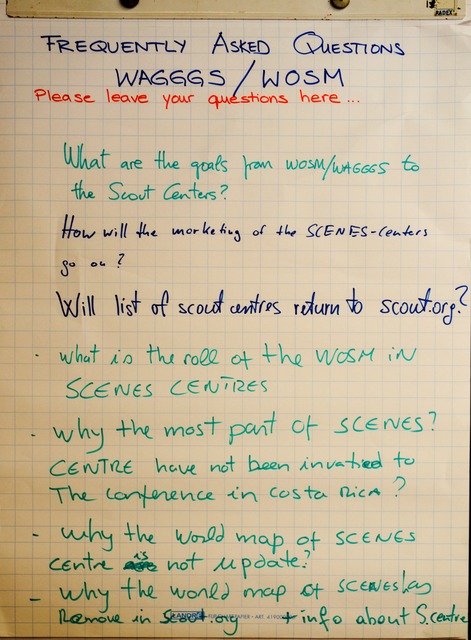 FREQUENTLY ASKED QUESTIONS
WAGGGS/WOSM
Please leave your questions here ...
What are the goals from WOSM/WAGGGS to
the Scout Centers?
How will the marketing of the SCENES-centers
go on?
Will list of scout centres return to scout.org?
- what is the roll of the WOSM in
SCENES CENTRES
- why the most part of SCENES?
CENTRE have not been invatied to
The conference in costa Rica?
- why the world map of SCENES
centre is not update?
- why the world map of SCENES has
Remove in .org + info about S.centre